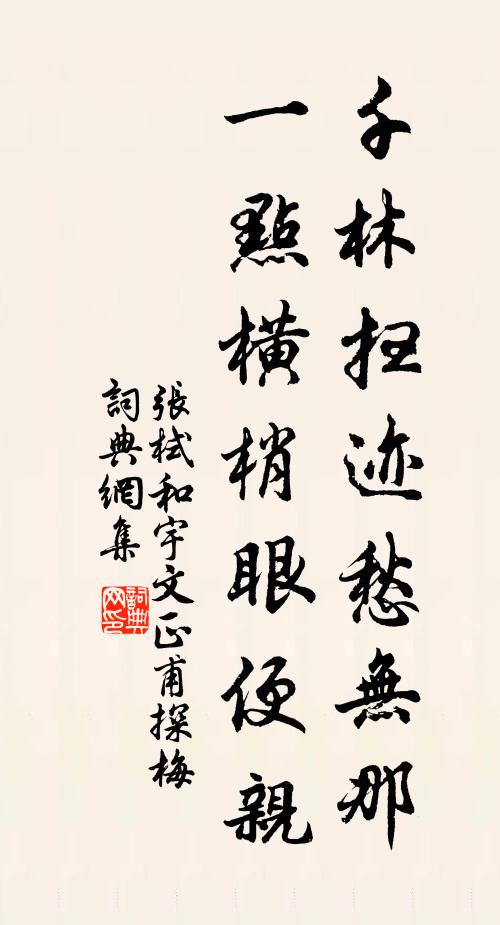 千林扫迹愁無那
一點橫梢眼便親
張栻和宇文正甫探梅
詞典網集
詞典网印